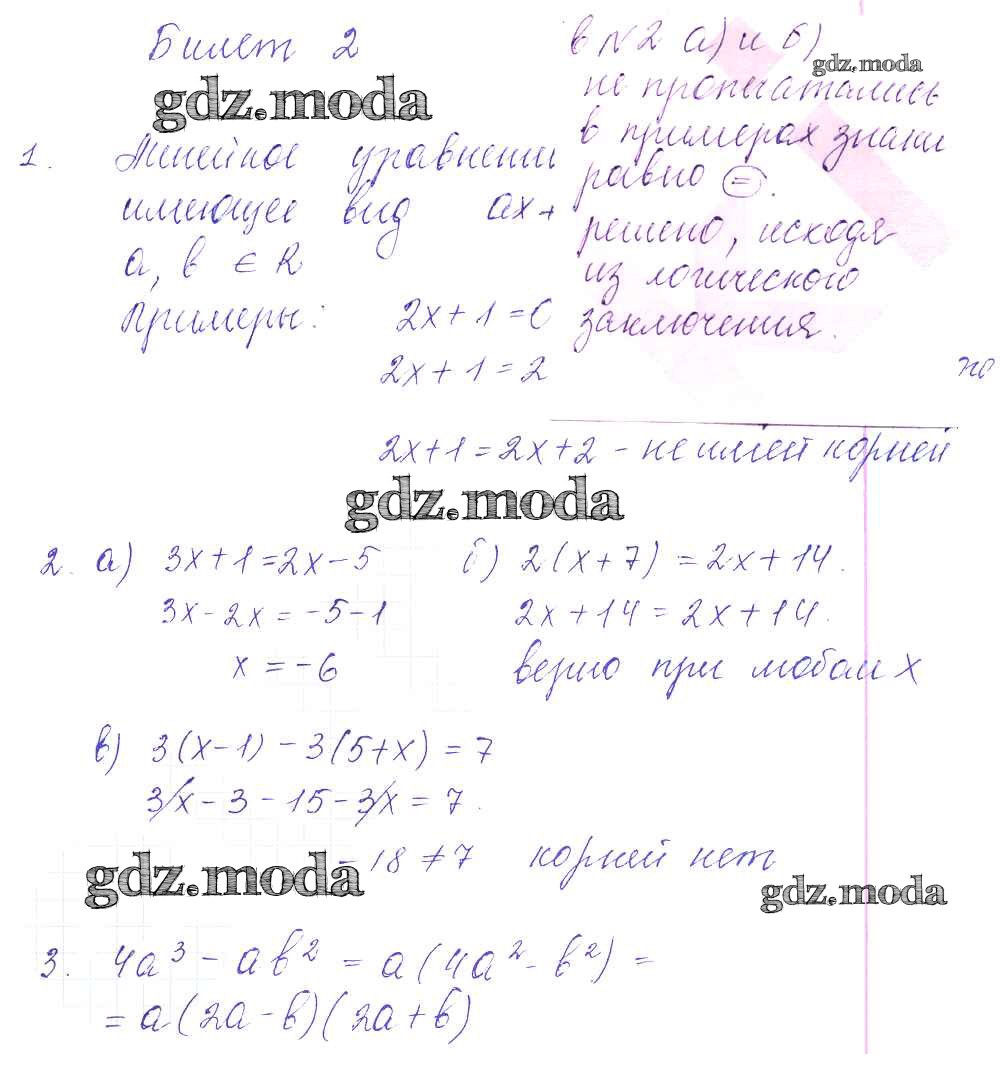 Билет 2
gdz.moda
1. Линейное уравнени
имеющее вид ax+
a, b ∈ R
Примеры: 2x+1=0
2x+1=2
в №2 а) и б)
gdz.moda
не пропечатались
в примерах знаки
равно =.
решено, исходя
из логического
заключения.
2x+1=2x+2 - не имеет корней
gdz.moda
2. а) 3x+1=2x-5
3x-2x=-5-1
x=-6
б) 2(x+7)=2x+14.
2x+14=2x+14.
верно при любом x
в) 3(x-1)-3(5+x)=7
3x-3-15-3x=7.
-18≠7 корней нет
gdz.moda
gdz.moda
3. 4a³-ab²=a(4a²-b²)=
=a(2a-b)(2a+b)